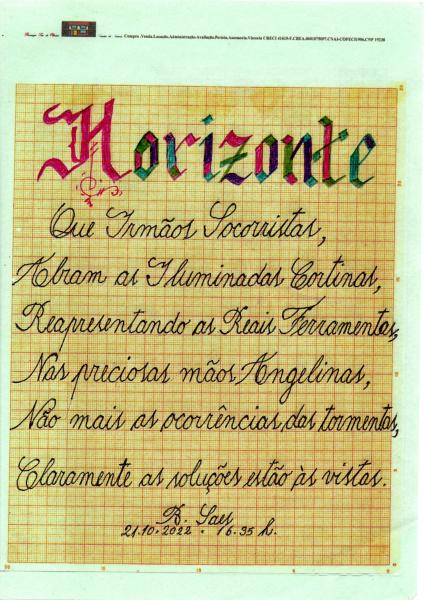 Compra .Venda.Locação.Administração.Avaliação.Perícia.Assessoria.Vistoria
Horizonte
Que Irmãos Socorristas,
Abram as Iluminadas Cortinas,
Reapresentando as Reais Ferramentas,
Nas preciosas mãos Angelinas,
Não mais as ocorrências, das tormentas,
Claramente as soluções estão às vistas.
B. Saes
21.10.2022 - 16.35 h.